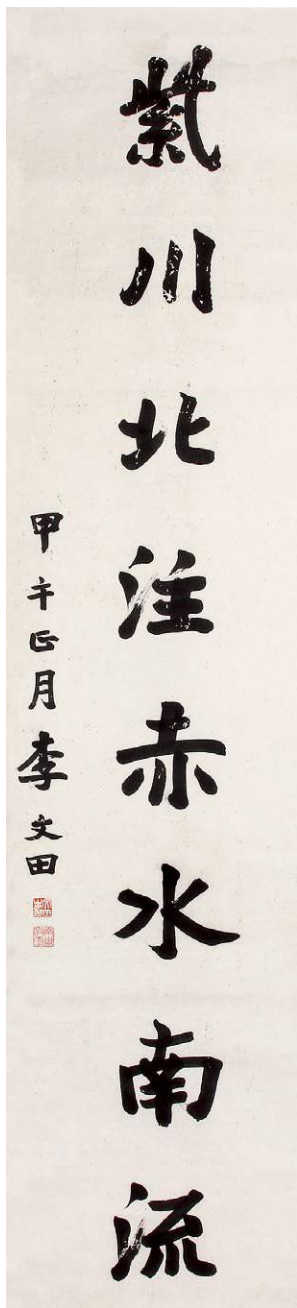 紫川北注赤水南流
甲午正月李文田